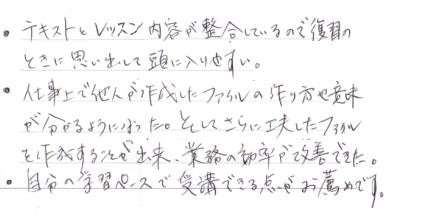 • テキストとレッスン内容が整合しているので復習の
ときに思い出して頭に入りやすい。
• 仕事上で他人が作成したファイルの作り方や意味
が分かるようになった。そしてさらに工夫したファイル
を作成することが出来、業務の効率が改善できた。
• 自分の学習ペースで受講できる点がお薦めです。